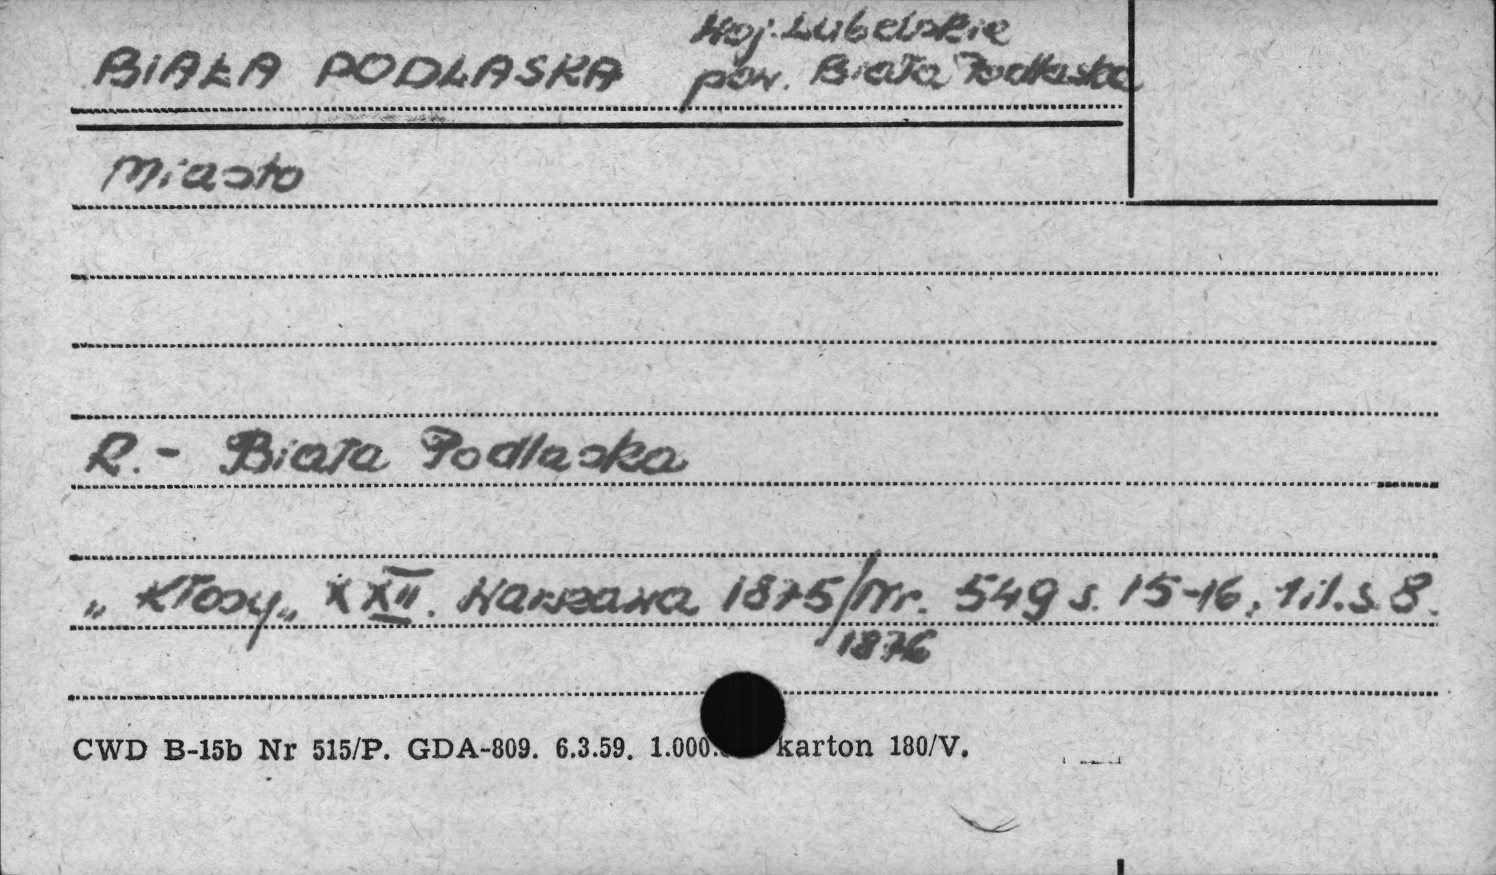 BIAŁA PODLASKA
Woj. Lubelskie
pow. Biała Podlaska
Miasto
R. - Biała Podlaska
"Kłosy" XXII. Warszawa 1875/1876 Nr. 549 s. 15-16, 1 il. s. 8.
CWD B-15b Nr 515/P. GDA-809. 6.3.59. 1.000. karton 180/V.